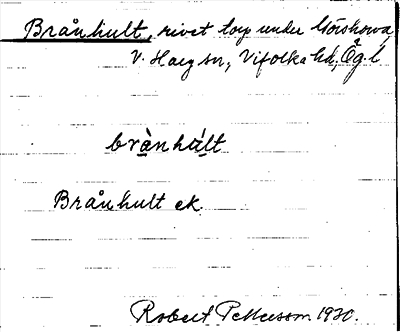 Brånhult, rivet torp under Mörshowa
V. Harg sn, Vifolka hd, Ög l
brànhált
Brånhult ek.
Robert Petterson 1930.